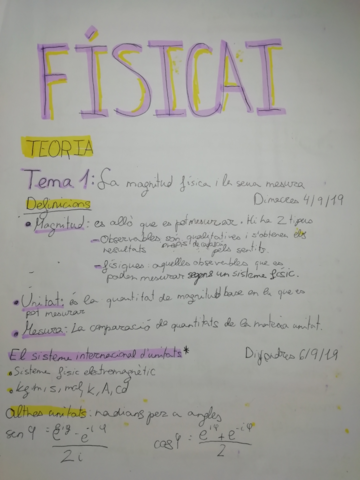 FÍSICA I
TEORIA
Tema 1: La magnitud física i la seva mesura
Definicions
Dimecres 4/9/19
• Magnitud: és allò que es pot mesurar. Hi ha 2 tipus
→ Observables són qualitatives i s'obtenen els
resultats pels sentits
→ físiques: aquelles observables que es
poden mesurar segons un sistema físic.
• Unitat: és la quantitat de magnitud base en la que es
pot mesurar
• Mesura: La comparació de quantitats de la mateixa unitat.
El sistema internacional d'unitats*
Divendres 6/9/19
• Sistema físic elektromagnètic
• kg, m, s, mol, k, A, cd
Altres unitats: radians per a angles
sen φ = e^iφ - e^-iφ / 2i
cos φ = e^iφ + e^-iφ / 2